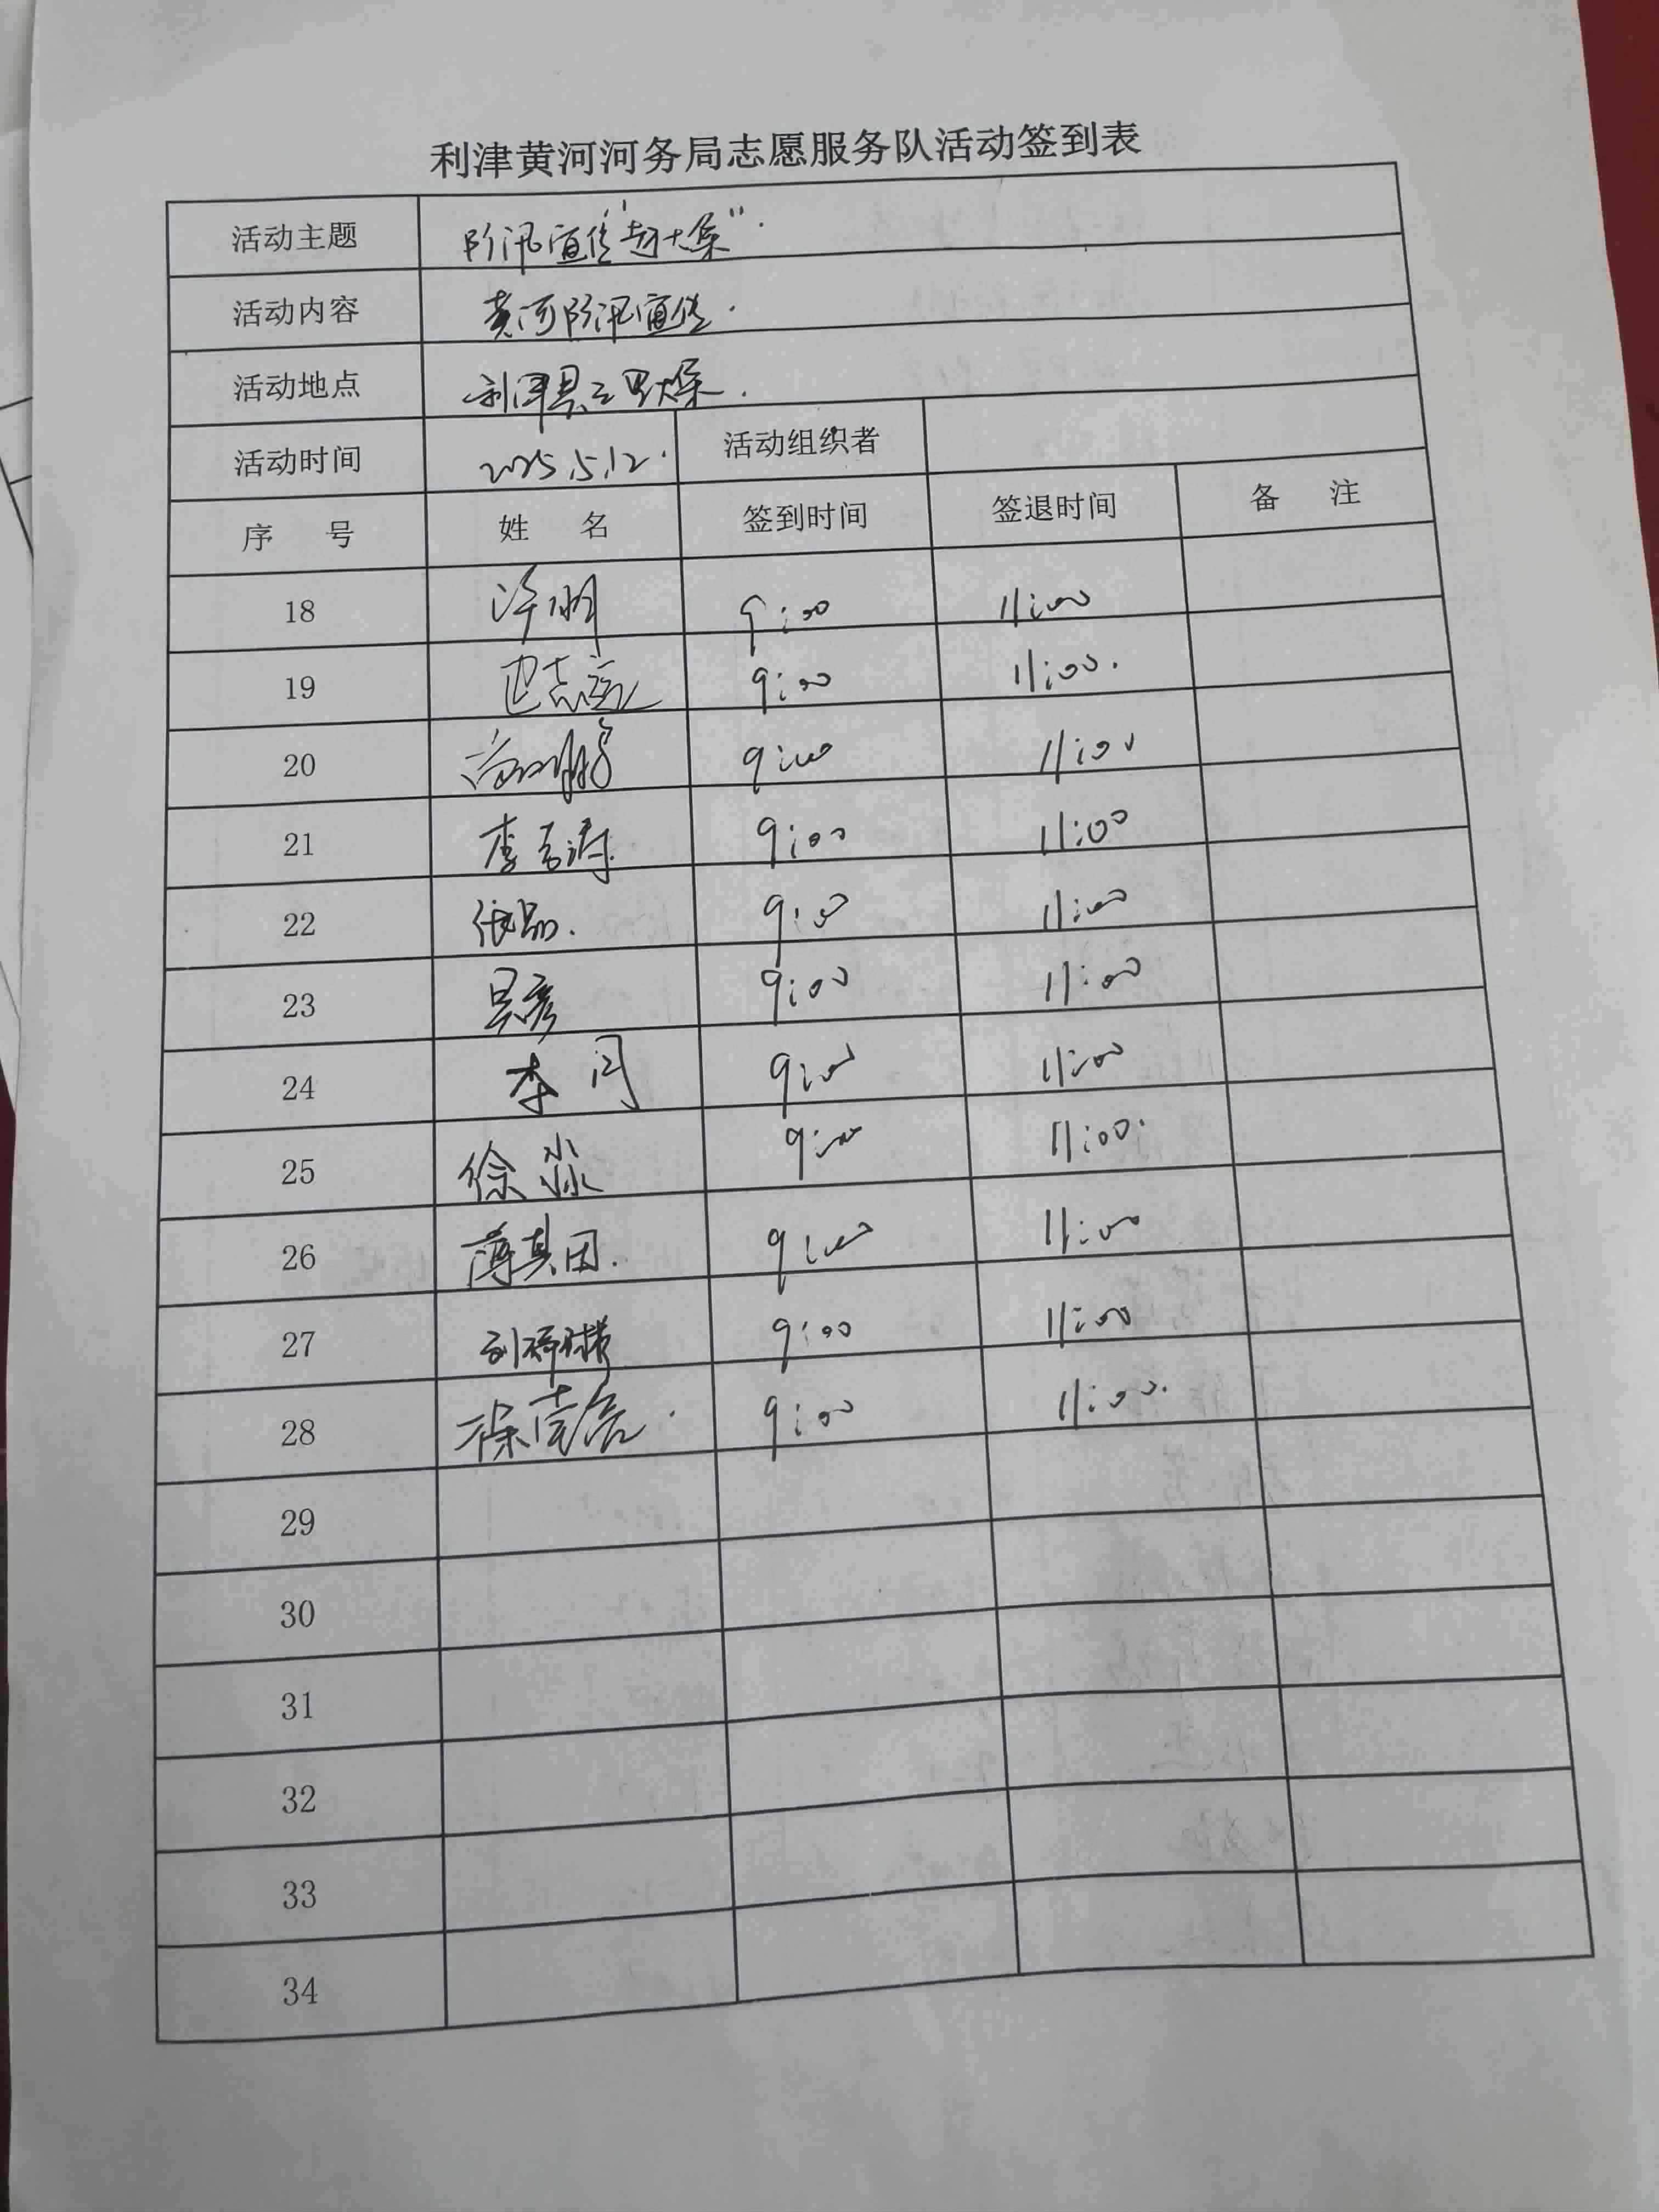 利津黄河河务局志愿服务队活动签到表
活动主题 防汛宣传"赶大集".
活动内容 黄河防汛宣传.
活动地点 利津县三里大集.
活动时间 2025.5.12. 活动组织者
序 号 姓 名 签到时间 签退时间 备 注
18 许明 9:00 11:00
19 9:00 11:00.
20 9:00 11:00
21 李吉涛 9:00 11:00
22 9:00 11:00
23 吴彦 9:00 11:00
24 李闪 9:00 11:00
25 徐淼 9:00 11:00.
26 薄其田. 9:00 11:00
27 9:00 11:00
28 9:00 11:00.
29
30
31
32
33
34